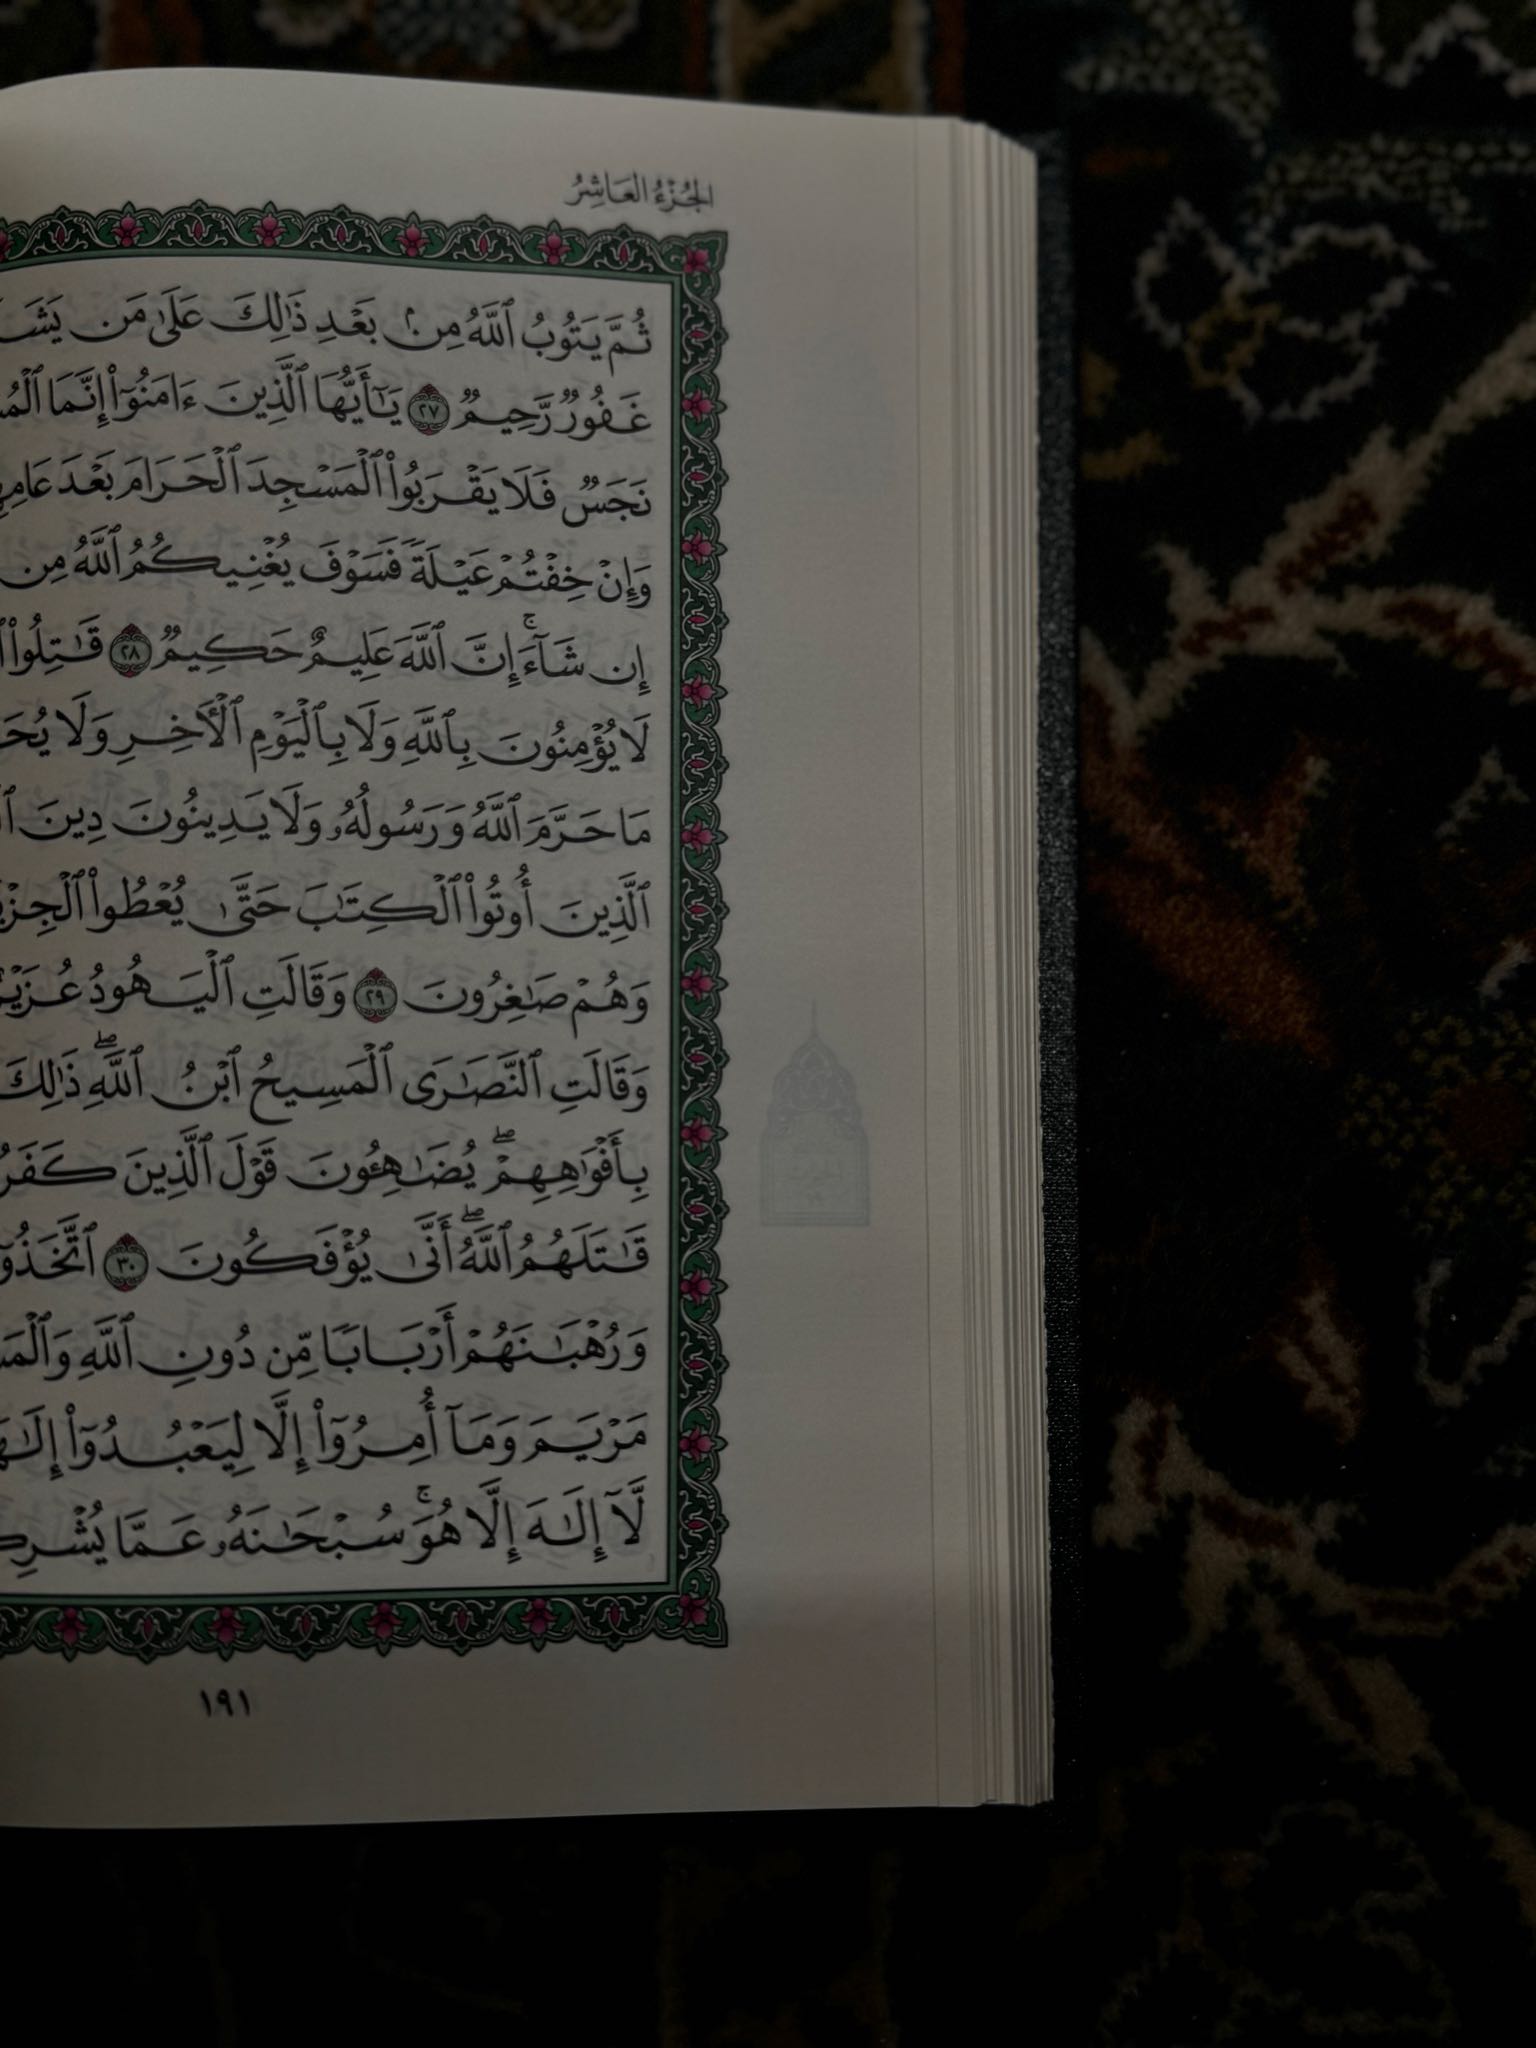 الجُزْءُ العَاشِرُ
ثُمَّ يَتُوبُ ٱللَّهُ مِنۢ بَعْدِ ذَٰلِكَ عَلَىٰ مَن يَشَ
غَفُورٌ رَّحِيمٌ ٢٧ يَـٰٓأَيُّهَا ٱلَّذِينَ ءَامَنُوٓا۟ إِنَّمَا ٱلْمُ
نَجَسٌ فَلَا يَقْرَبُوا۟ ٱلْمَسْجِدَ ٱلْحَرَامَ بَعْدَ عَامِهِ
وَإِنْ خِفْتُمْ عَيْلَةً فَسَوْفَ يُغْنِيكُمُ ٱللَّهُ مِن
إِن شَآءَ ۚ إِنَّ ٱللَّهَ عَلِيمٌ حَكِيمٌ ٢٨ قَـٰتِلُوا۟ ٱ
لَا يُؤْمِنُونَ بِٱللَّهِ وَلَا بِٱلْيَوْمِ ٱلْـَٔاخِرِ وَلَا يُحَ
مَا حَرَّمَ ٱللَّهُ وَرَسُولُهُۥ وَلَا يَدِينُونَ دِينَ ٱ
ٱلَّذِينَ أُوتُوا۟ ٱلْكِتَـٰبَ حَتَّىٰ يُعْطُوا۟ ٱلْجِزْيَ
وَهُمْ صَـٰغِرُونَ ٢٩ وَقَالَتِ ٱلْيَهُودُ عُزَيْرٌ
وَقَالَتِ ٱلنَّصَـٰرَى ٱلْمَسِيحُ ٱبْنُ ٱللَّهِ ۖ ذَٰلِكَ
بِأَفْوَٰهِهِمْ ۖ يُضَـٰهِـُٔونَ قَوْلَ ٱلَّذِينَ كَفَرُ
قَـٰتَلَهُمُ ٱللَّهُ ۖ أَنَّىٰ يُؤْفَكُونَ ٣٠ ٱتَّخَذُوٓ
وَرُهْبَـٰنَهُمْ أَرْبَابًا مِّن دُونِ ٱللَّهِ وَٱلْمَسِ
مَرْيَمَ وَمَآ أُمِرُوٓا۟ إِلَّا لِيَعْبُدُوٓا۟ إِلَـٰهً
لَّآ إِلَـٰهَ إِلَّا هُوَ ۚ سُبْحَـٰنَهُۥ عَمَّا يُشْرِكُ
١٩١